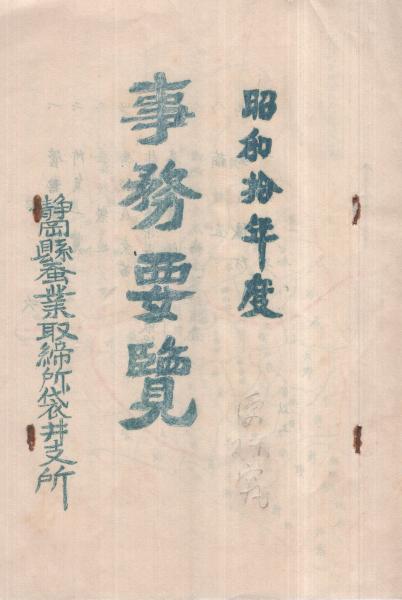 昭和拾年度
事務要覽
静岡縣蚕業取締所袋井支所